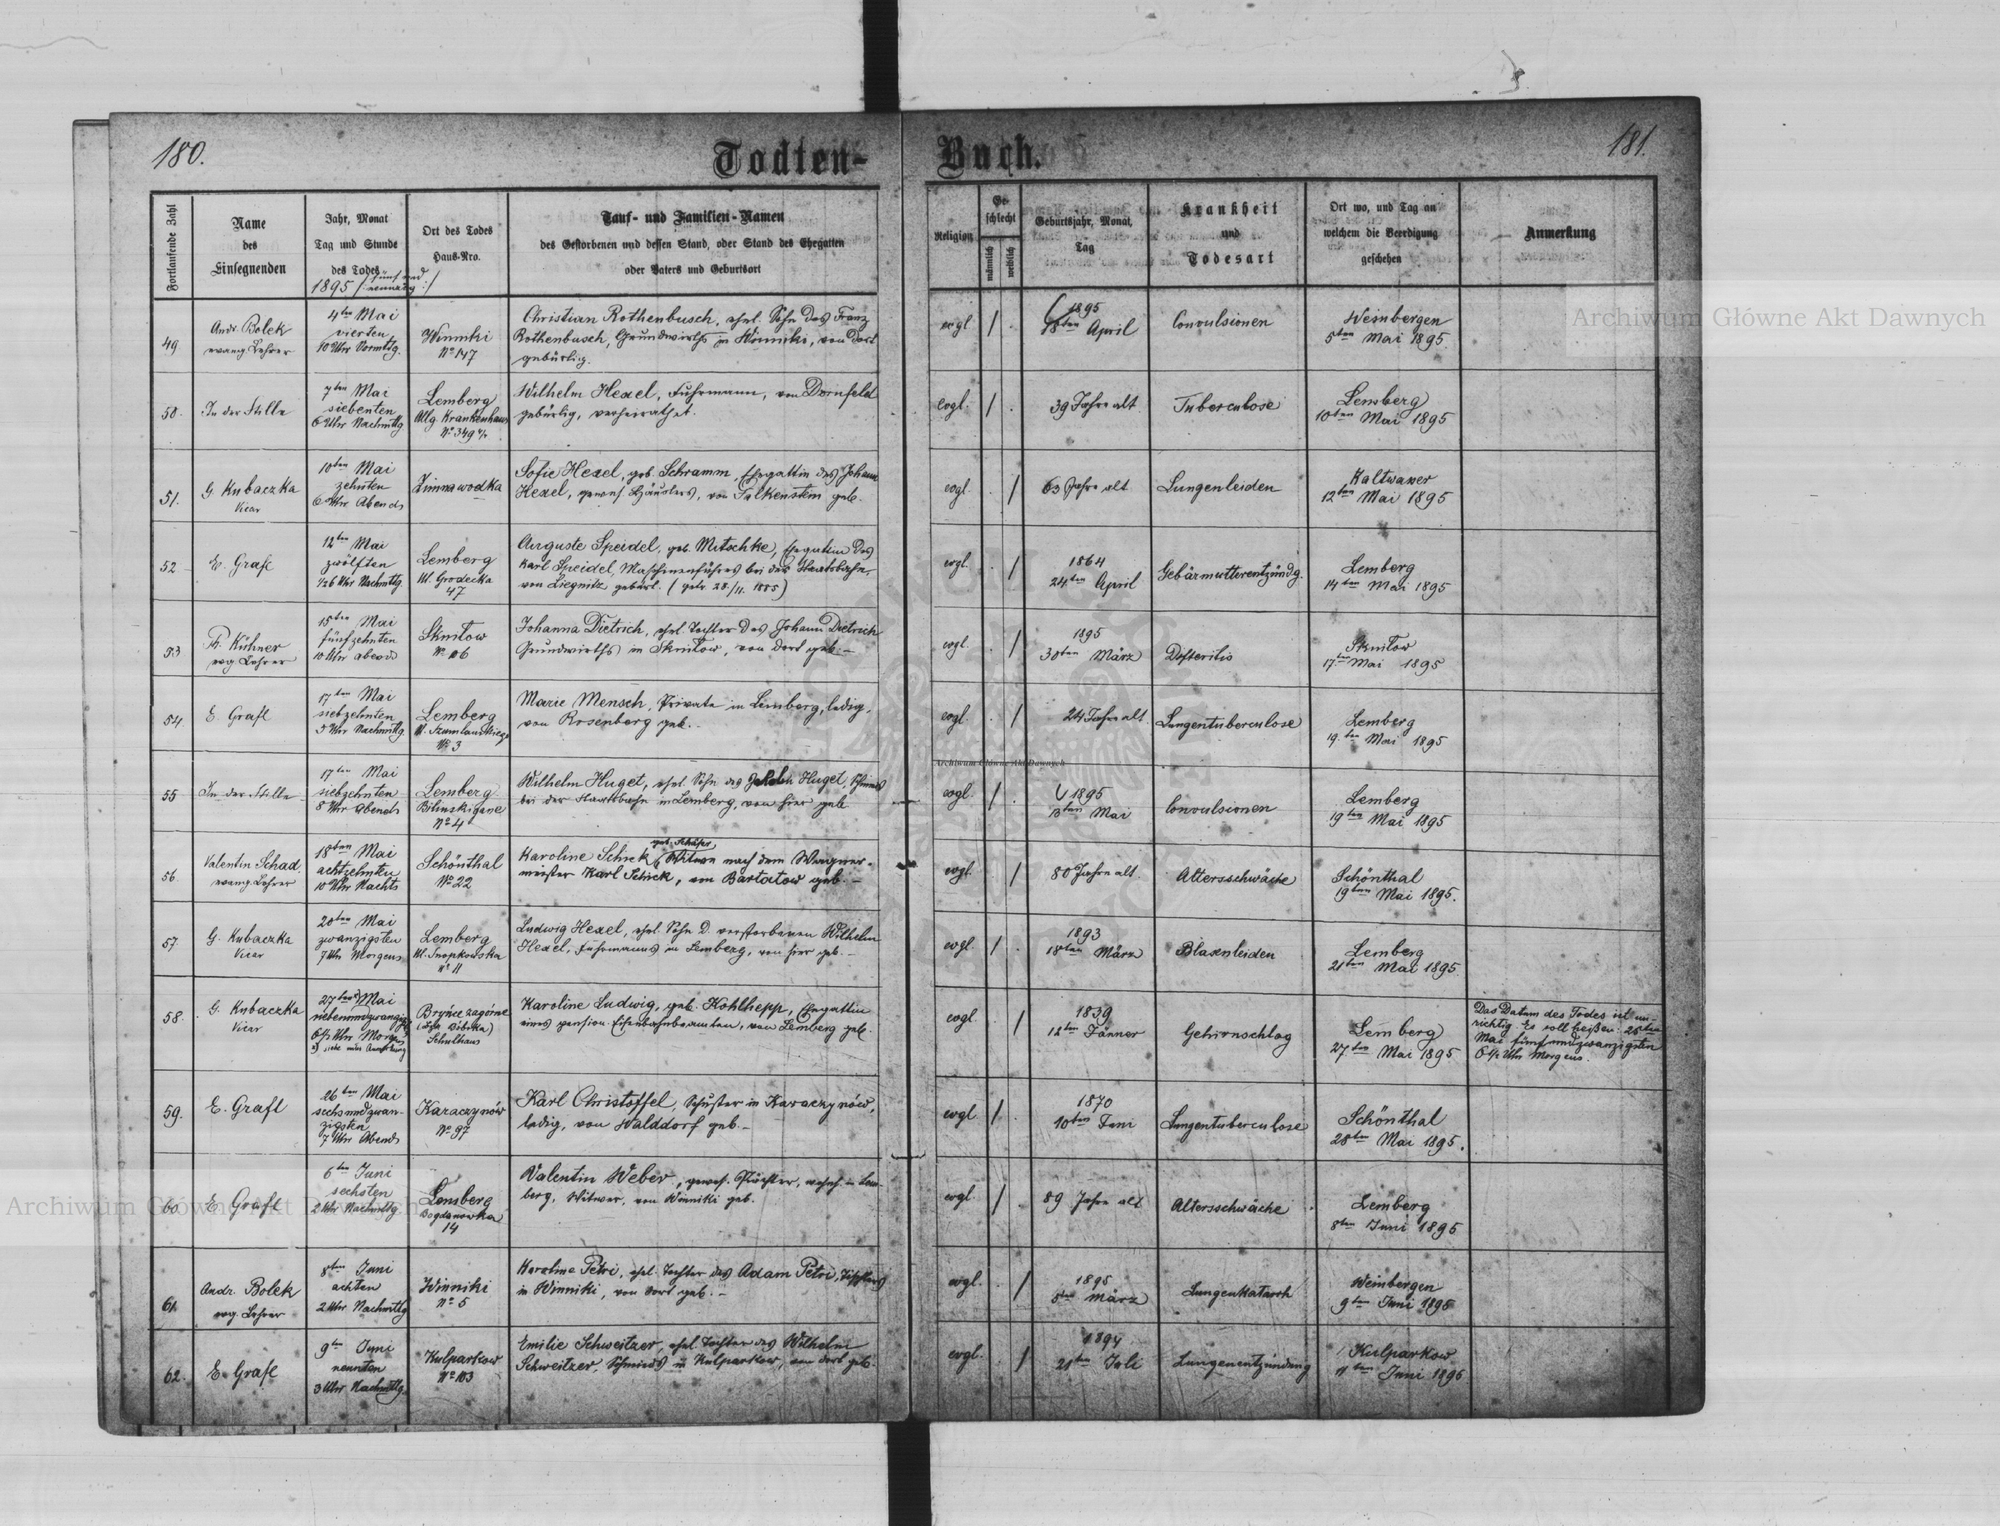 180.
Todten-
Buch.
181.
Fortlaufende Zahl
Name
des
Einsegnenden
Jahr, Monat
Tag und Stunde
des Todes
1895 /:fünfund
neunzig:/
Ort des Todes
Haus-Nro.
Tauf- und Familien-Namen
des Gestorbenen und dessen Stand, oder Stand des Ehegatten
oder Vaters und Geburtsort
Religion
Ge-
schlecht
männlich
weiblich
Geburtsjahr, Monat,
Tag
Krankheit
und
Todesart
Ort wo, und Tag an
welchem die Beerdigung
geschehen
Anmerkung
49
Andr. Bolek
evang. Lehrer
4ten Mai
vierten
10 Uhr Vormttg.
Winniki
No 147
Christian Rothenbusch, ehel. Sohn des Franz
Rothenbusch, Grundwirths in Winniki, von dort
gebürtig.
evgl
/
1895
18ten April
Convulsionen
Weinbergen
5ten Mai 1895.
50.
In der Stille
7ten Mai
siebenten
6 Uhr Nachmttg.
Lemberg
Allg. Krankenhaus
No 349 4/4
Wilhelm Hexel, Fuhrmann, von Dornfeld
gebürtig, verheirathet.
evgl.
/
39 Jahre alt
Tuberculose
Lemberg
10ten Mai 1895
51.
G. Kubaczka
Vicar
10ten Mai
zehnten
6 Uhr Abends
Zimnawodka
Sofie Hexel, geb. Schramm, Ehegattin des Johann
Hexel, gewes. Häuslers, von Falkenstein geb.
evgl.
/
63 Jahre alt
Lungenleiden
Kaltwasser
12ten Mai 1895
52
E. Grafl
12ten Mai
zwölften
1/26 Uhr Nachmttg
Lemberg
Ul. Grodecka
47
Auguste Speidel, geb. Mitschke, Ehegattin des
Karl Speidel, Maschinenführers bei der Staatsbahn,
von Liegnitz gebürt. (getr. 28/11. 1885)
evgl.
/
1864
24ten April
Gebärmutterentzündg.
Lemberg
14ten Mai 1895
53
Ph. Kühner
evg Lehrer
15ten Mai
fünfzehnten
10 Uhr abends
Sknilow
No 106
Johanna Dietrich, ehel. Tochter des Johann Dietrich
Grundwirths in Sknilow, von dort geb.–
evgl.
/
1895
30ten März
Difteritis
Sknilow
17.ten Mai 1895
54.
E. Grafl
17ten Mai
siebzehnten
5 Uhr Nachmttg.
Lemberg
No 3
Marie Mensch, Private in Lemberg, ledig,
von Rosenberg geb.–
evgl.
/
24 Jahre alt
Lungentuberculose
Lemberg
19.ten Mai 1895
55
In der Stille
17ten Mai
siebzehnten
8 Uhr abends
Lemberg
Bilinskigasse
No 4
Wilhelm Huget, ehel. Sohn des Jakob Huget,
bei der Staatsbahn in Lemberg, von hier geb.
evgl.
/
1895
13ten Mai
Convulsionen
Lemberg
19ten Mai 1895
56.
Valentin Schad.
evang. Lehrer
18ten Mai
achtzehnten
10 Uhr Nachts
Schönthal
No 22
geb. Schäfer,
Karoline Schick, Witwe nach dem Wagner-
meister Karl Schick, von Bartatow geb.–
evgl.
/
80 Jahre alt.
Altersschwäche
Schönthal
19ten Mai 1895.
57.
G. Kubaczka
Vicar
20ten Mai
zwanzigsten
7 Uhr Morgens
Lemberg
Ul. Snopkowska
No 11
Ludwig Hexel, ehel. Sohn d. verstorbenen Wilhelm
Hexel, Fuhrmanns in Lemberg, von hier geb.–
evgl.
/
1893
18ten März
Blasenleiden
Lemberg
21ten Mai 1895.
58.
G. Kubaczka
Vicar
27ten Mai
siebenundzwanzigst
6 1/2 Uhr Morgens
siehe unter Anmerkung
Bryńce zagórne
Schulhaus
Karoline Ludwig, geb. Kohlhepp, Ehegattin
eines pension. Eisenbahnbeamten, von Lemberg geb.
evgl.
/
1839
12ten Jänner
Gehirnschlag
Lemberg
27.ten Mai 1895
Das Datum des Todes ist un-
richtig. Es soll heißen: 25ten
Mai fünfundzwanzigsten
6 1/2 Uhr Morgens.
59.
E. Grafl
26ten Mai
sechsundzwan-
zigsten
7 Uhr Abends
Karaczynów
No 97
Karl Christoffel, Schuster in Karaczynów,
ledig, von Walddorf geb.–
evgl
/
1870
10ten Juni
Lungentuberculose
Schönthal
28ten Mai 1895.
60.
E. Grafl
6ten Juni
sechsten
2 Uhr Nachmttg.
Lemberg
Bogdanowka
14
Valentin Weber, gewes. Pächter, wohnh. in Lem-
berg, Witwer, von Winniki geb.
evgl
/
89 Jahre alt
Altersschwäche
Lemberg
8ten Juni 1895
61.
Andr. Bolek
evg Lehrer
8ten Juni
achten
2 Uhr Nachmttg
Winniki
No 5
Karoline Petri, ehel. Tochter des Adam Petri, Tischlers
in Winniki, von dort geb.–
evgl.
/
1895
5ten März
Lungenkatarrh
Weinbergen
9ten Juni 1895
62.
E. Grafl
9ten Juni
neunten
3 Uhr Nachmttg.
Kulparkow
No 103
Emilie Schweitzer, ehel. Tochter des Wilhelm
Schweitzer, Schmieds in Kulparkow, von dort geb.
evgl.
/
1894
21ten Juli
Lungenentzündung
Kulparkow
11ten Juni 1895
Archiwum Główne Akt Dawnych
Archiwum Główne Akt Dawnych
Archiwum Główne Akt Dawnych